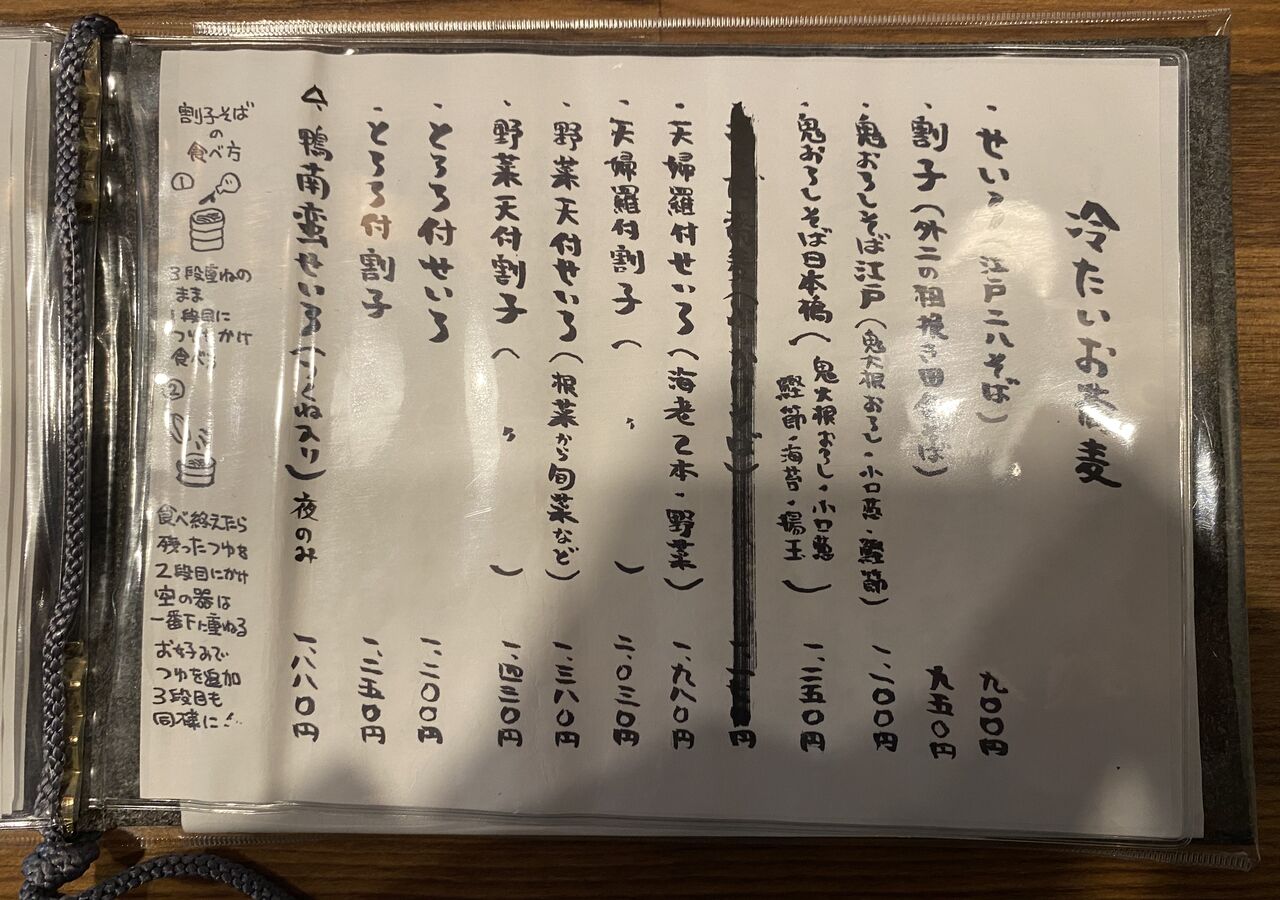 冷たいお蕎麦
・せいろ（江戸二八そば） 九〇〇円
・割子（外二の粗挽き田舎そば） 九五〇円
・鬼おろしそば江戸（鬼大根おろし・小口葱・鰹節） 一、一〇〇円
・鬼おろしそば日本橋（鬼大根おろし・小口葱
鰹節・海苔・揚玉） 一、二五〇円
円
・天婦羅付せいろ（海老2本・野菜） 一、九八〇円
・天婦羅付割子（〃） 二、〇三〇円
・野菜天付せいろ（根菜から旬菜など） 一、三八〇円
・野菜天付割子（〃） 一、四三〇円
・とろろ付せいろ 一、二〇〇円
・とろろ付割子 一、二五〇円
・鴨南蛮せいろ（つくね入り）夜のみ 一、八八〇円
割子そば
の
食べ方
①
3段重ねの
まま
1段目に
つゆをかけ
食べる
②
食べ終えたら
残ったつゆを
2段目にかけ
空の器は
一番下に重ねる
お好みで
つゆを追加
3段目も
同様に!